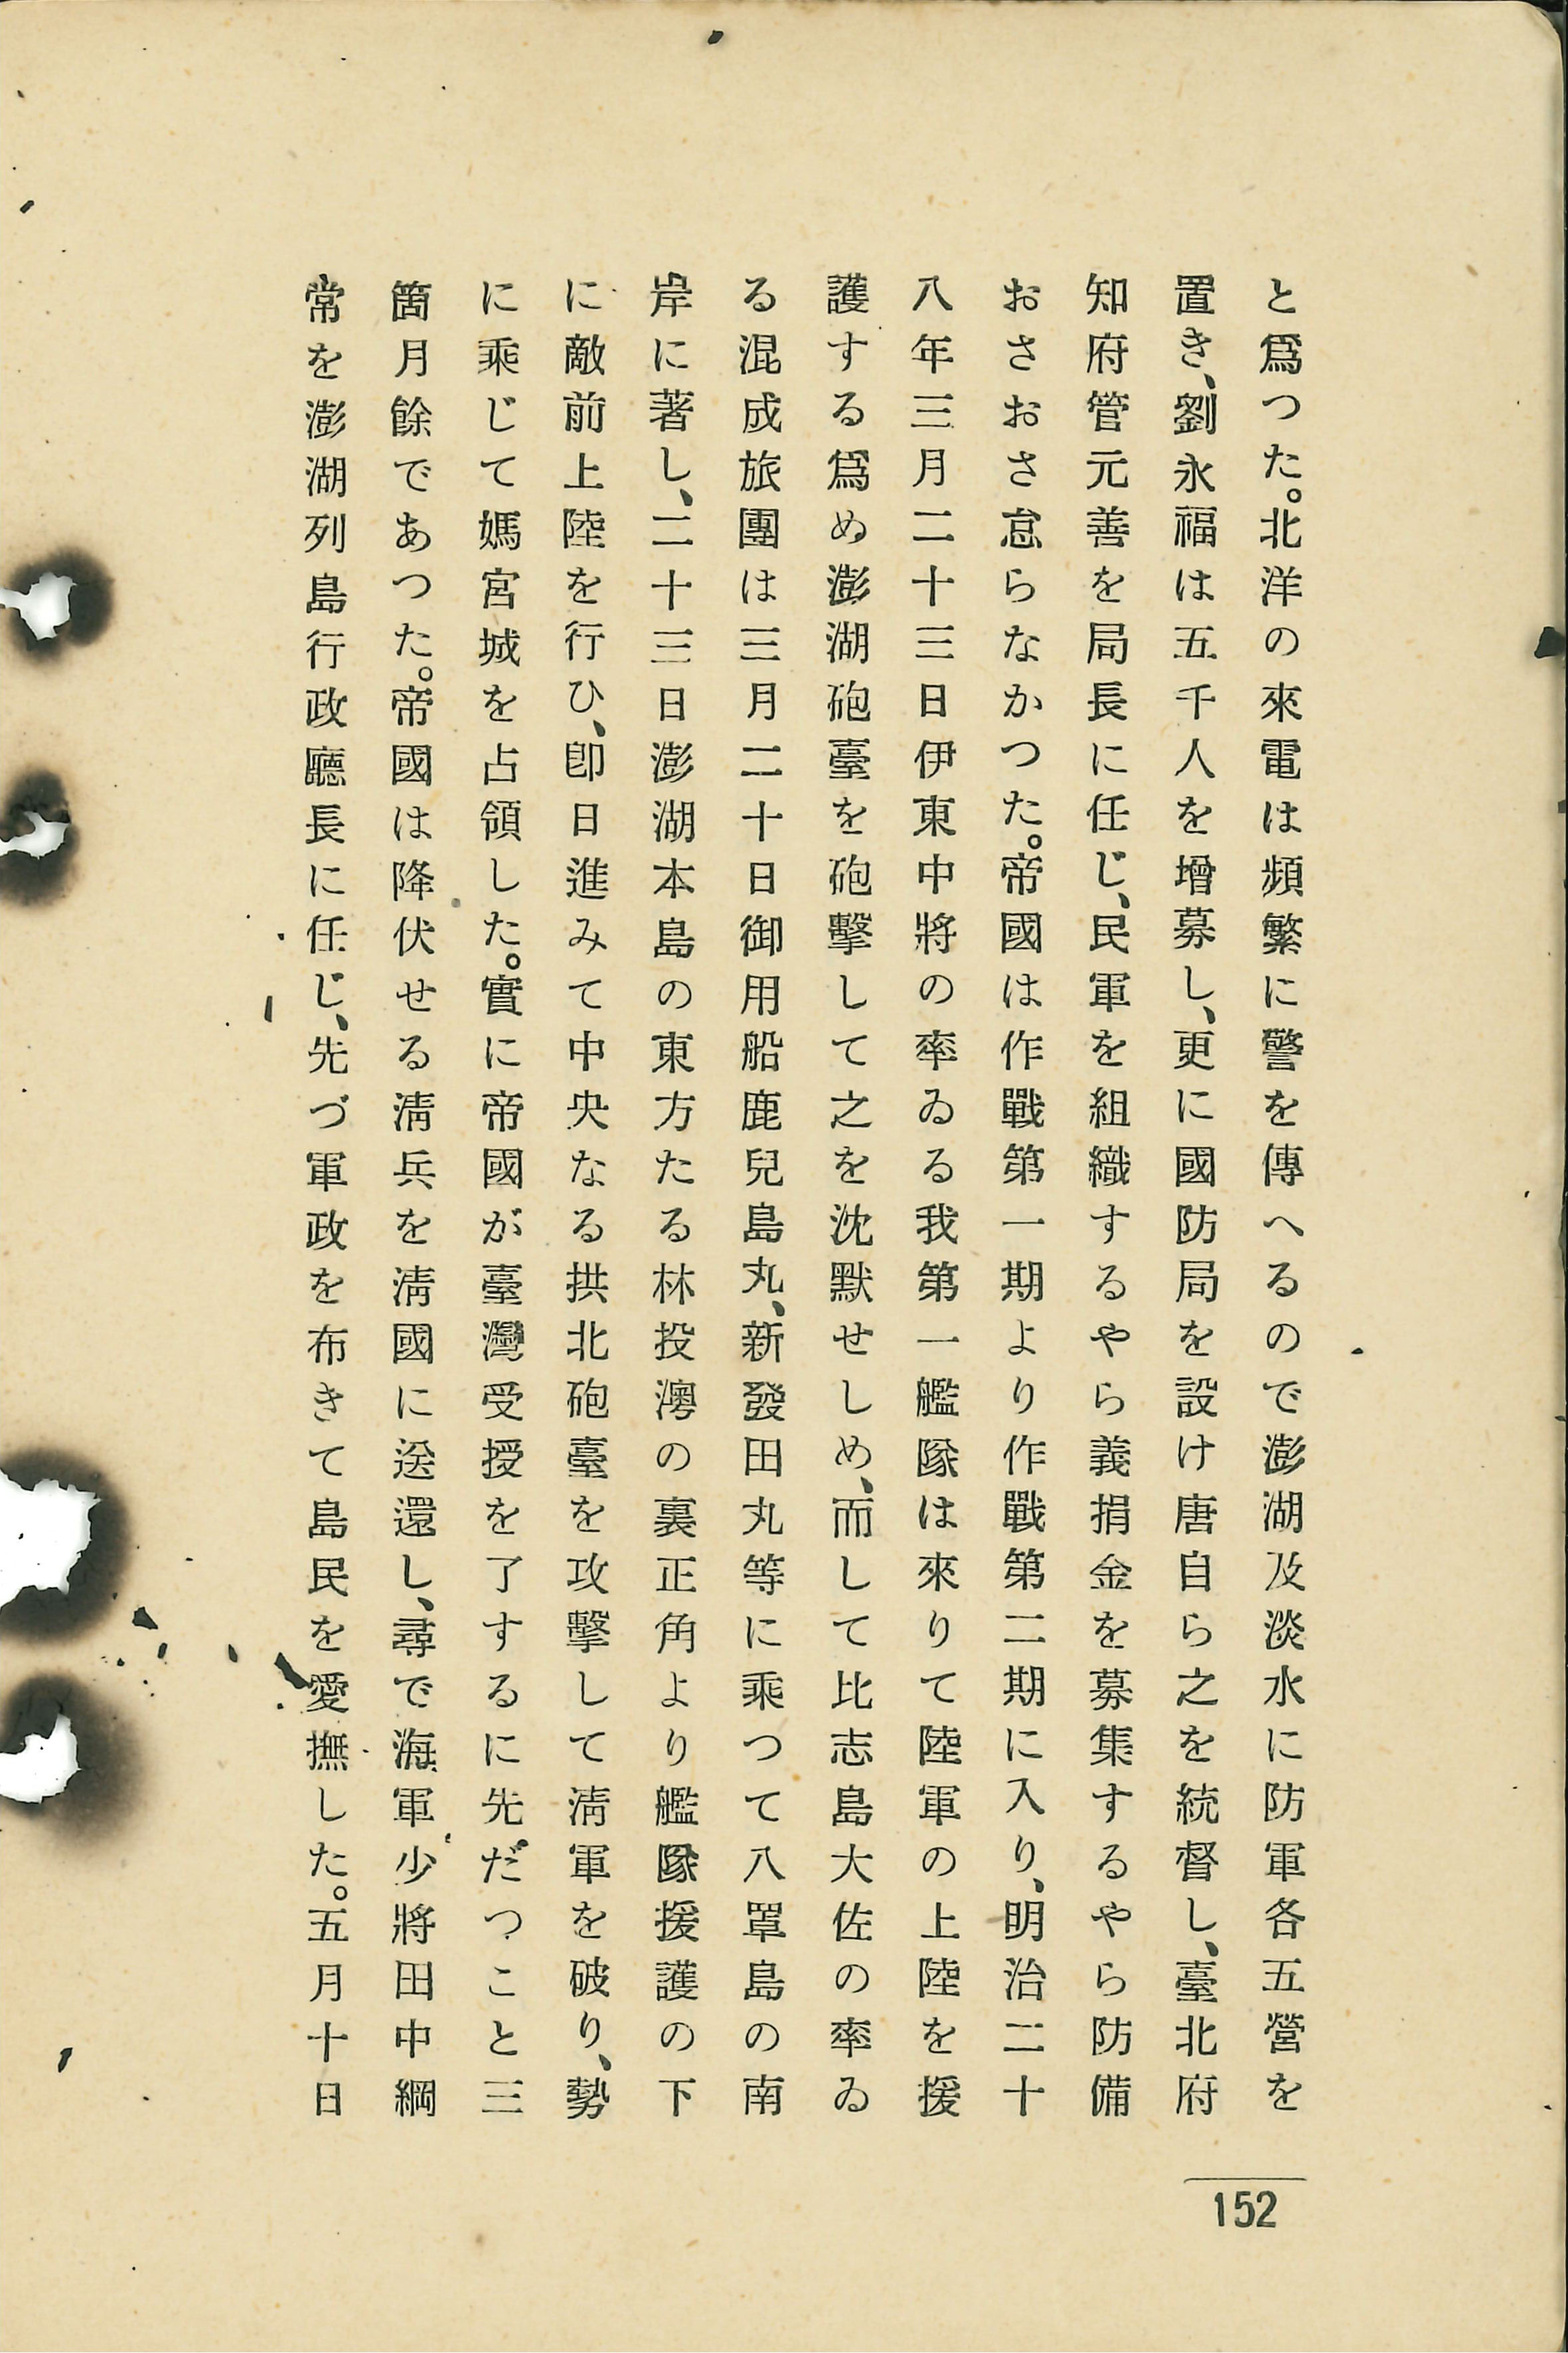 と爲つた。北洋の來電は頻繁に警を傳へるので澎湖及淡水に防軍各五營を
置き、劉永福は五千人を增募し、更に國防局を設け唐自ら之を統督し、臺北府
知府管元善を局長に任じ、民軍を組織するやら義捐金を募集するやら防備
おさおさ怠らなかつた。帝國は作戰第一期より作戰第二期に入り、明治二十
八年三月二十三日伊東中將の率ゐる我第一艦隊は來りて陸軍の上陸を援
護する爲め澎湖砲臺を砲擊して之を沈默せしめ、而して比志島大佐の率ゐ
る混成旅團は三月二十日御用船鹿兒島丸、新發田丸等に乘つて八罩島の南
岸に著し、二十三日澎湖本島の東方たる林投澳の裏正角より艦隊援護の下
に敵前上陸を行ひ、卽日進みて中央なる拱北砲臺を攻擊して淸軍を破り、勢
に乘じて媽宮城を占領した。實に帝國が臺灣受授を了するに先だつこと三
箇月餘であつた。帝國は降伏せる淸兵を淸國に送還し、尋で海軍少將田中綱
常を澎湖列島行政廳長に任じ、先づ軍政を布きて島民を愛撫した。五月十日
152